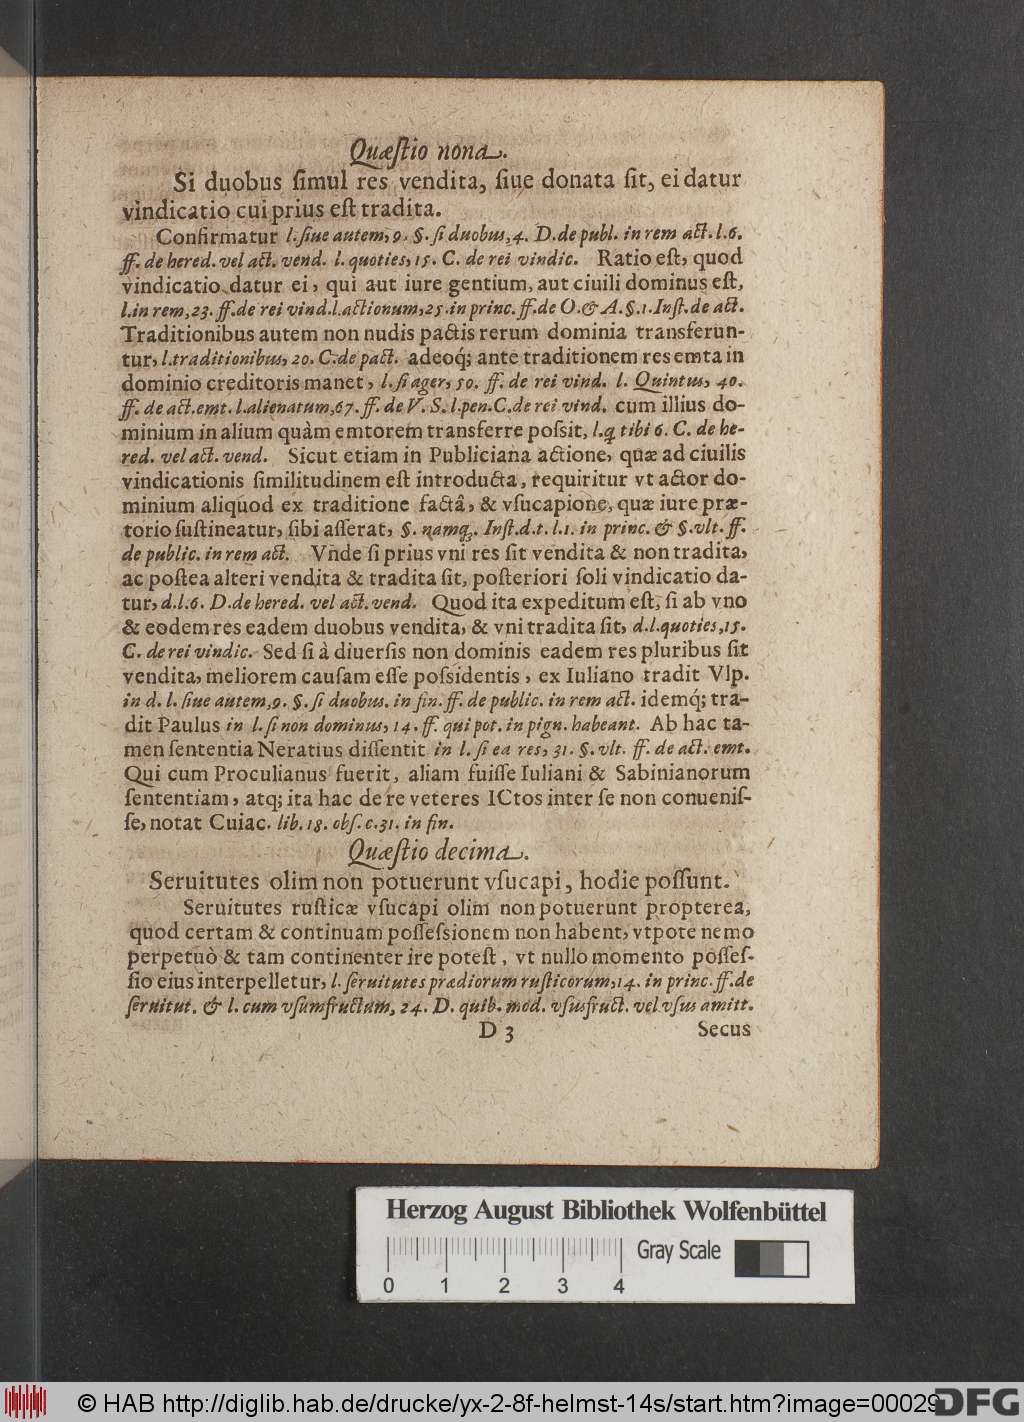 Quæſtio nona.
Si duobus ſimul res vendita, ſiue donata ſit, ei datur
vindicatio cui prius eſt tradita.
Confirmatur l. ſiue autem, 9. §. ſi duobus, 4. D. de publ. in rem act. l. 6.
ff. de hered. vel act. vend. l. quoties, 15. C. de rei vindic. Ratio eſt, quod
vindicatio datur ei, qui aut iure gentium, aut ciuili dominus eſt,
l. in rem, 23. ff. de rei vind. l. actionum, 25. in princ. ff. de O. & A. §. 1. Inſt. de act.
Traditionibus autem non nudis pactis rerum dominia transferun-
tur, l. traditionibus, 20. C. de pact. adeoq́; ante traditionem res emta in
dominio creditoris manet, l. ſi ager, 50. ff. de rei vind. l. Quintus, 40.
ff. de act. emt. l. alienatum, 67. ff. de V. S. l. pen. C. de rei vind. cum illius do-
minium in alium quàm emtorem transferre poſsit, l. q tibi 6. C. de he-
red. vel act. vend. Sicut etiam in Publiciana actione, quæ ad ciuilis
vindicationis ſimilitudinem eſt introducta, requiritur vt actor do-
minium aliquod ex traditione factâ, & vſucapione, quæ iure præ-
torio ſuſtineatur, ſibi aſſerat, §. namq́;. Inſt. d. t. l. 1. in princ. & §. vlt. ff.
de public. in rem act. Vnde ſi prius vni res ſit vendita & non tradita,
ac poſtea alteri vendita & tradita ſit, poſteriori ſoli vindicatio da-
tur, d. l. 6. D. de hered. vel act. vend. Quod ita expeditum eſt, ſi ab vno
& eodem res eadem duobus vendita, & vni tradita ſit, d. l. quoties, 15.
C. de rei vindic. Sed ſi à diuerſis non dominis eadem res pluribus ſit
vendita, meliorem cauſam eſſe poſsidentis, ex Iuliano tradit Vlp.
in d. l. ſiue autem, 9. §. ſi duobus. in fin. ff. de public. in rem act. idemq́; tra-
dit Paulus in l. ſi non dominus, 14. ff. qui pot. in pign. habeant. Ab hac ta-
men ſententia Neratius diſſentit in l. ſi ea res, 31. §. vlt. ff. de act. emt.
Qui cum Proculianus fuerit, aliam fuiſſe Iuliani & Sabinianorum
ſententiam, atq; ita hac de re veteres ICtos inter ſe non conueniſ-
ſe, notat Cuiac. lib. 18. obſ. c. 31. in fin.
Quæſtio decima.
Seruitutes olim non potuerunt vſucapi, hodie poſſunt.
Seruitutes ruſticæ vſucapi olim non potuerunt propterea,
quod certam & continuam poſſeſsionem non habent, vtpote nemo
perpetuò & tam continenter ire poteſt, vt nullo momento poſſeſ-
ſio eius interpelletur, l. ſeruitutes prædiorum ruſticorum, 14. in princ. ff. de
ſeruitut. & l. cum vſumfructum, 24. D. quib. mod. vſusfruct. vel vſus amitt.
D 3
Secus
Herzog August Bibliothek Wolfenbüttel
Gray Scale
0 1 2 3 4
© HAB http://diglib.hab.de/drucke/yx-2-8f-helmst-14s/start.htm?image=00029
DFG